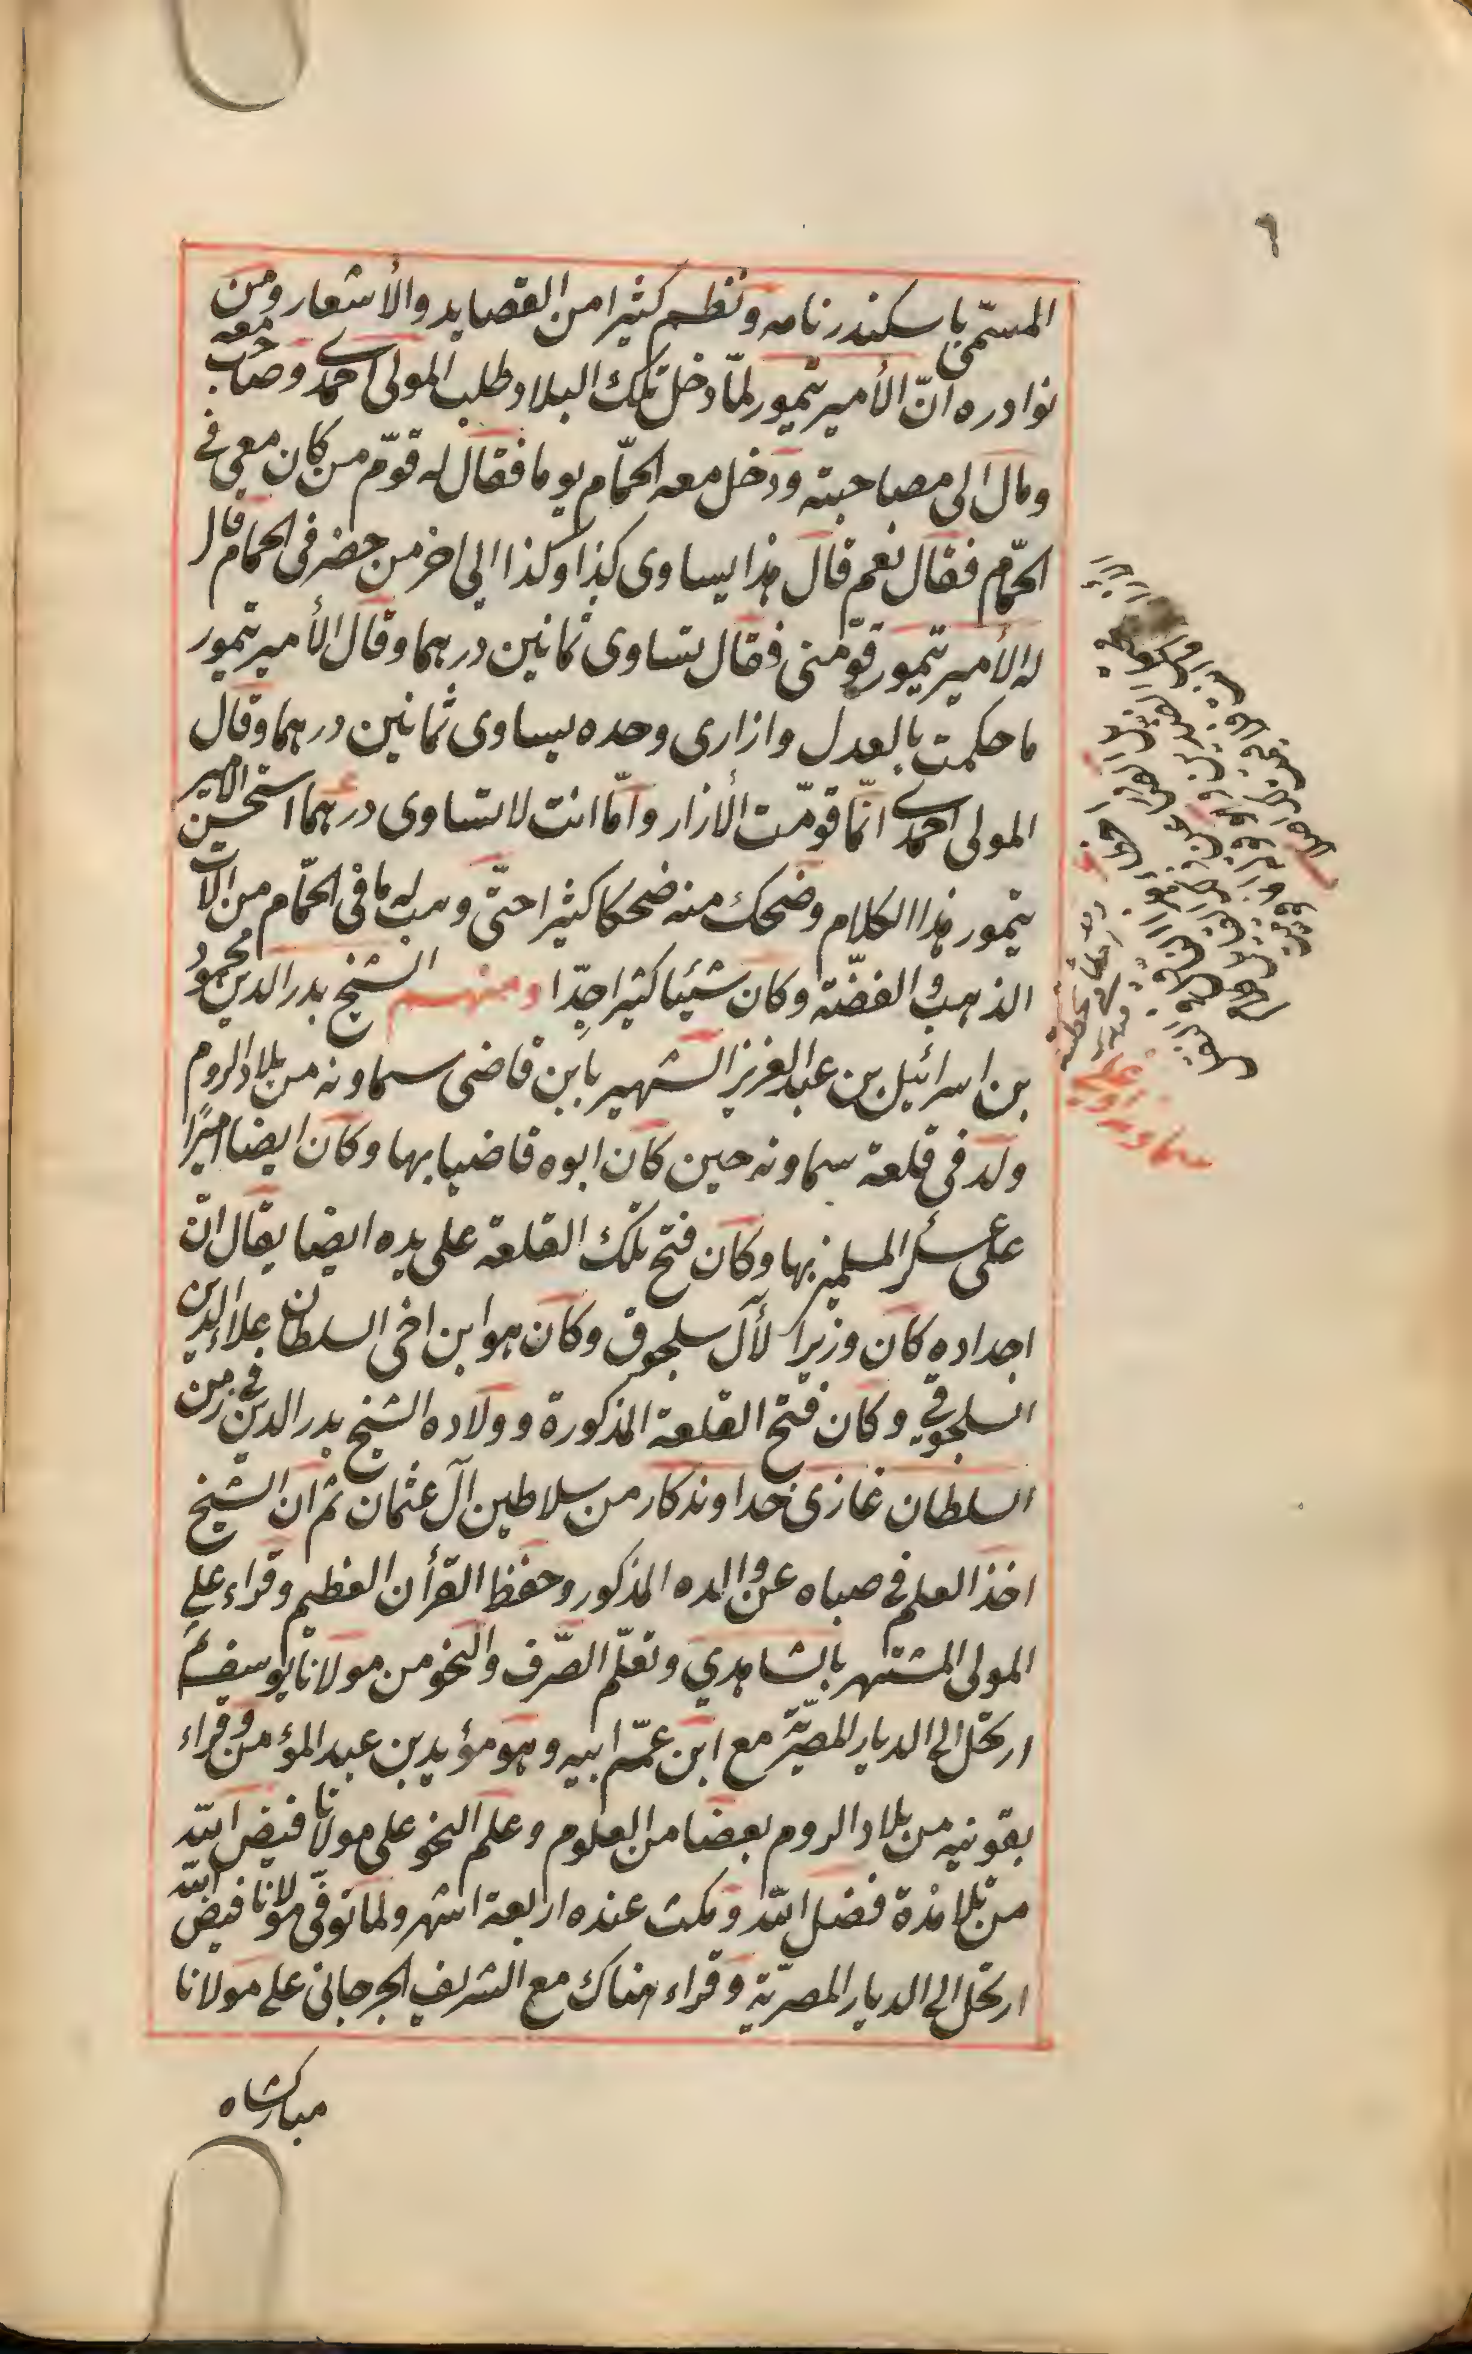 ٦
المسمّى باسكندر نامه ونظم كثيرا من القصايد والأشعار ومن
نوادره انّ الأمير تيمور لمّا دخل تلك البلاد طلب المولى احمدى وصاحب معه
ومال الى مصاحبته ودخل معه الحمّام يوما فقال له قوّم من كان معى فى
الحمّام فقال نعم قال هذا يساوى كذا وكذا الى اخر من حضر فى الحمام قال
له الأمير تيمور قوّمنى فقال تساوى ثمانين درهما وقال الأمير تيمور
ما حكمت بالعدل وازارى وحده يساوى ثمانين درهما وقال
المولى احمدى انّما قوّمت الأزار وامّا انت لا تساوى درهما استحسن الامير
تيمور هذا الكلام وضحك منه ضحكا كثيرا حتّى وهب له ما فى الحمّام من آلات
الذهب والفضّة وكان شيئا كثيرا جدّا ومنهم الشيخ بدر الدين محمود
بن اسرائيل بن عبد العزيز الشهير بابن قاضى سماونه من بلاد الروم
ولد فى قلعة سماونه حين كان ابوه قاضيا بها وكان ايضا اميرًا
على عسكر المسلمين بها وكان فتح تلك القلعة على يده ايضا يقال انّ
اجداده كان وزيرا لآل سلجوق وكان هو ابن اخى السلطان علاء الدين
السلجوقى وكان فتح القلعة المذكورة وولاده الشيخ بدر الدين فى زمن
السلطان غازى خداوندكار من سلاطين آل عثمان ثم ان الشيخ
اخذ العلم فى صباه عن والده المذكور وحفظ القرأن العظيم وقراء على
المولى المشتهر بالشاهدي وتعلّم الصّرف والنحو من مولانا يوسف ثم
ارتحل الى الديار المصريّة مع ابن عمّ ابيه وهو مؤيد بن عبد المؤمن وقراء
بقونيه من بلاد الروم بعضا من العلوم وعلم النحو على مولانا فيض الله
من تلامذة فضل الله ومكث عنده اربعة اشهر ولما توفّى مولانا فيض الله
ارتحل الى الديار المصريّة وقراء هناك مع الشريف الجرجانى على مولانا
مباركشاه